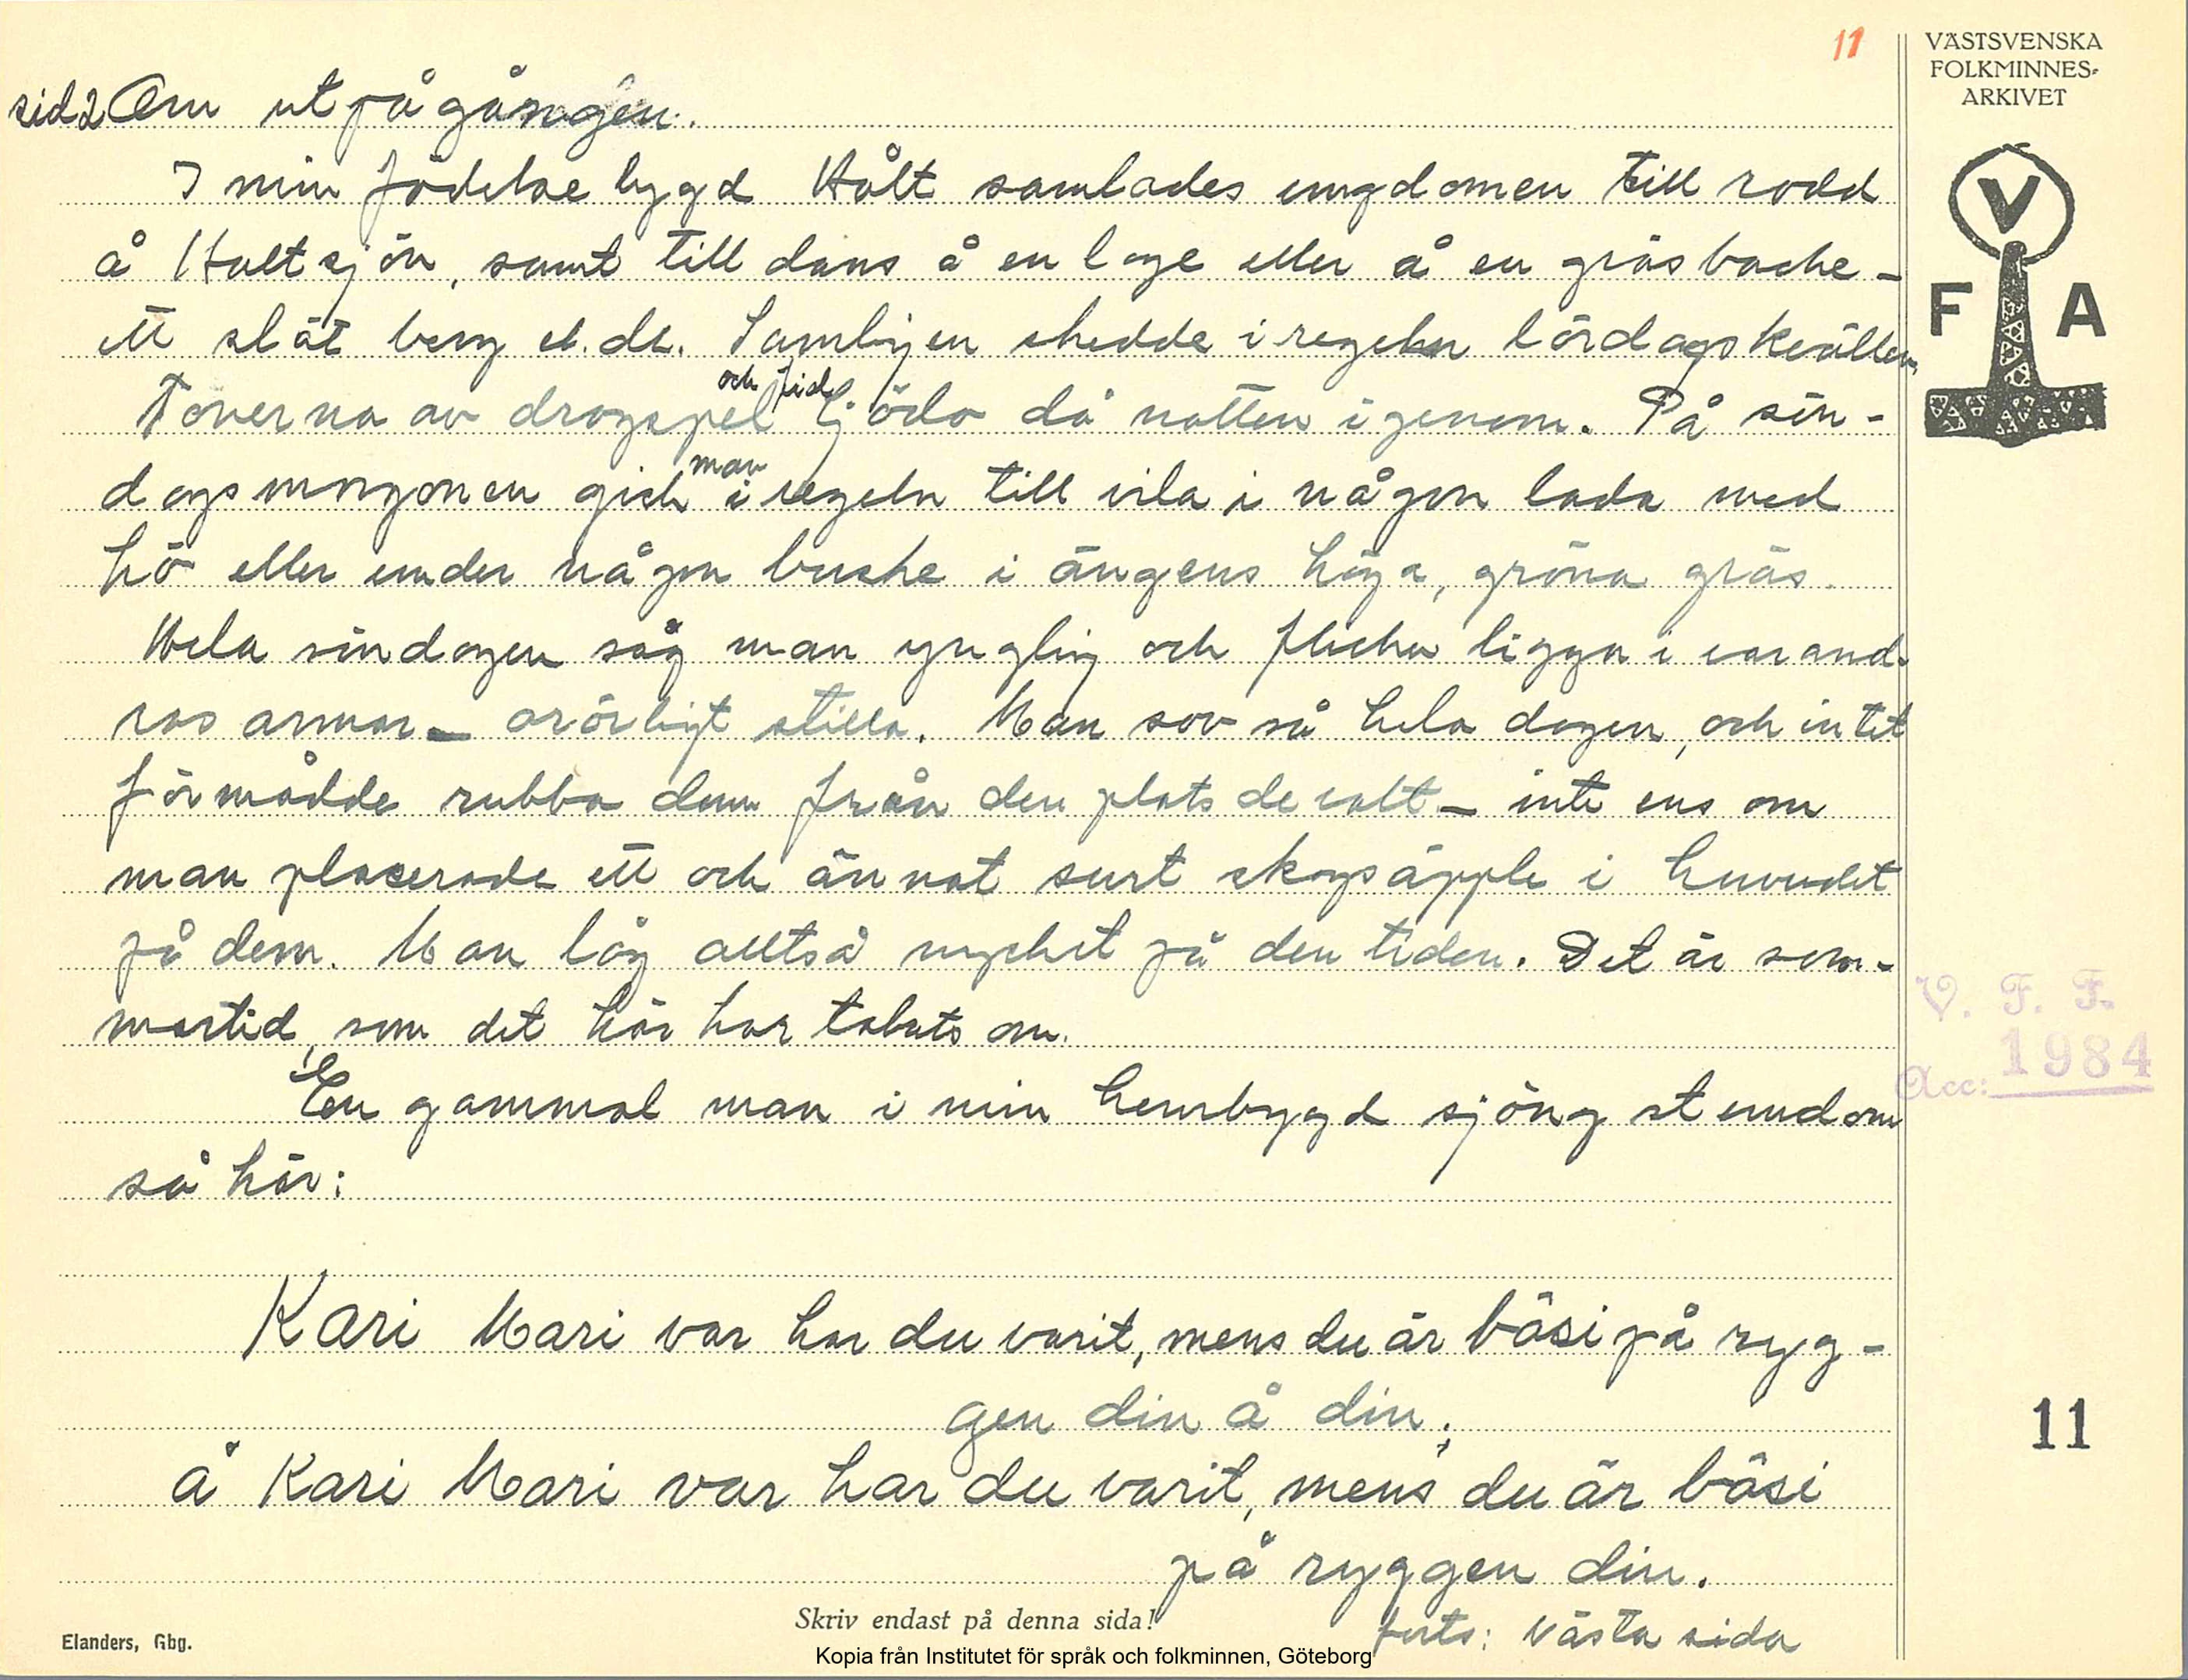 11
VÄSTSVENSKA
FOLKMINNES-
ARKIVET
V
F A
sid 2 Om utpågången.
I min födelsebygd Hålt samlades ungdomen till rodd
å Haltsjön, samt till dans å en loge eller å en gräsbacke –
ett slät berg el. dl. Samlingen skedde i regeln lördagskvällen,
Tonerna av dragspel och fid ljödo då natten igenom. På sön-
dagsmorgonen gick man i regeln till vila i någon lada med
hö eller under någon buske i ängens höga, gröna gräs.
Hela söndagen såg man yngling och flicka ligga i varand-
ras armar – orörligt stilla. Man sov så hela dagen, och intet
förmådde rubba dem från den plats de valt – inte ens om
man placerade ett och annat surt skogsäpple i huvudet
på dem. Man låg alltså mycket på den tiden. Det är som-
martid, som det här har talats om.
En gammal man i min hembygd sjöng stundom
så här:
Kari Mari var har du varit, mens du är båsi på ryg-
gen din å din;
å Kari Mari var har du varit, mens du är båsi
på ryggen din.
forts: nästa sida
V. F. F.
Acc: 1984
11
Skriv endast på denna sida!
Elanders, Gbg.
Kopia från Institutet för språk och folkminnen, Göteborg